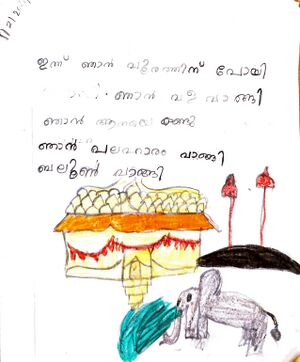 ഇന്ന് ഞാൻ പൂരത്തിന് പോയി
ഞാൻ വള വാങ്ങി
ഞാൻ ആനയെ കണ്ടു
ഞാൻ പലഹാരം വാങ്ങി
ബലൂൺ വാങ്ങി